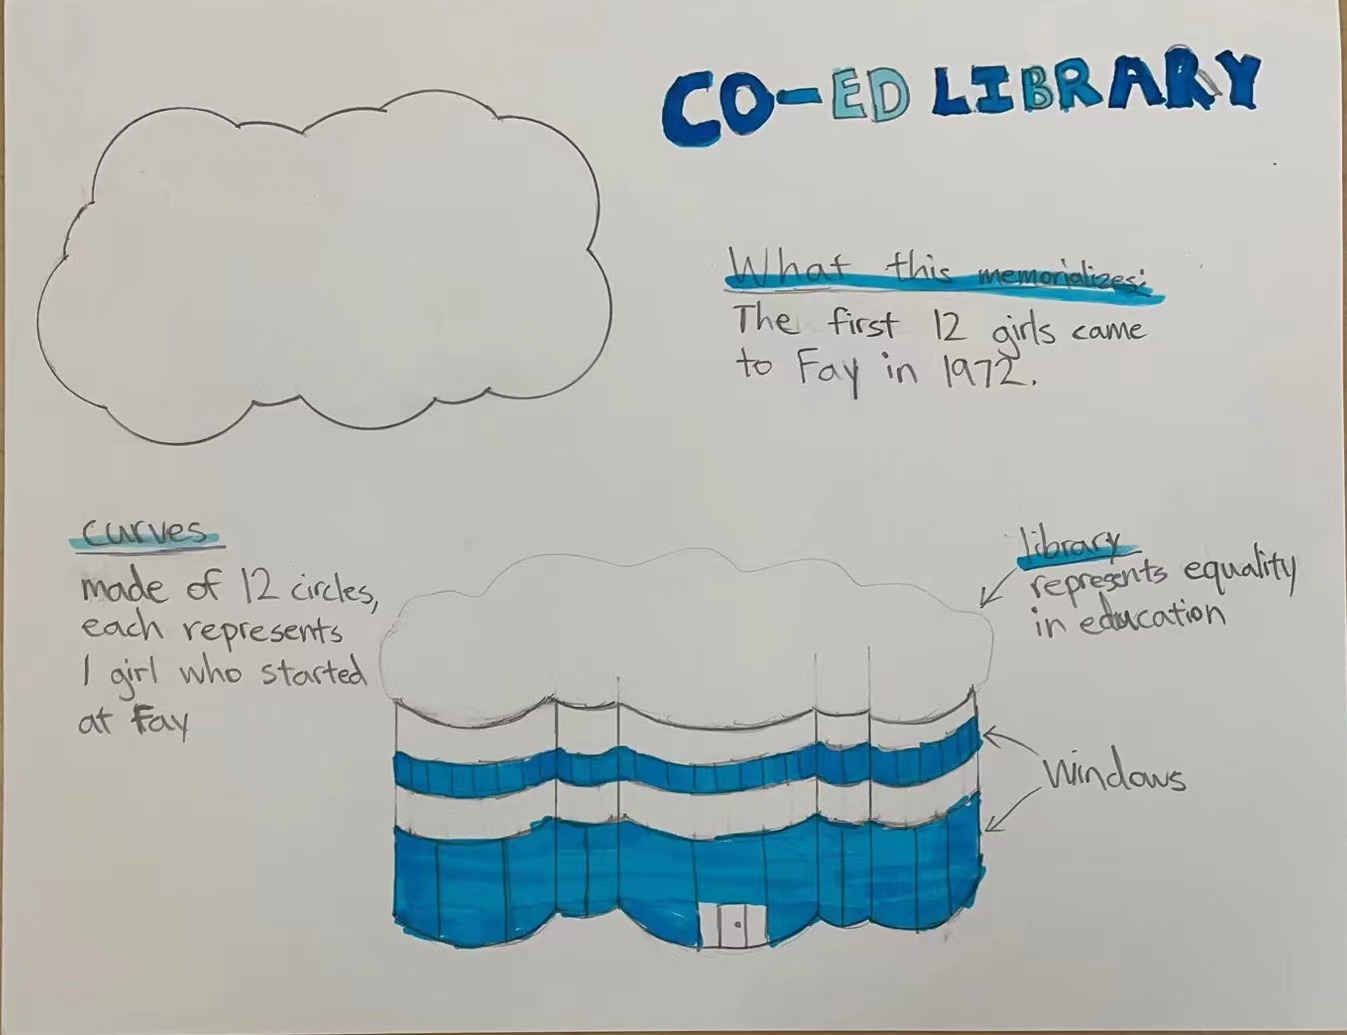 CO-ED LIBRARY
What this memorializes:
The first 12 girls came
to Fay in 1972.
curves
made of 12 circles,
each represents
1 girl who started
at Fay
library
represents equality
in education
Windows